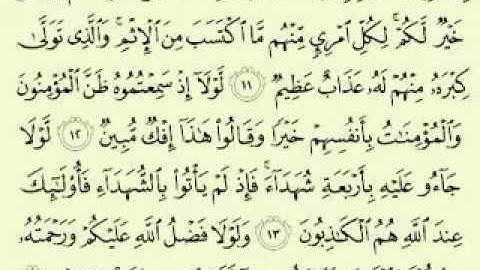 خَيْرٌ لَّكُمْ ۚ لِكُلِّ ٱمْرِئٍ مِّنْهُم مَّا ٱكْتَسَبَ مِنَ ٱلْإِثْمِ ۚ وَٱلَّذِى تَوَلَّىٰ
كِبْرَهُۥ مِنْهُمْ لَهُۥ عَذَابٌ عَظِيمٌ ١١ لَّوْلَآ إِذْ سَمِعْتُمُوهُ ظَنَّ ٱلْمُؤْمِنُونَ
وَٱلْمُؤْمِنَٰتُ بِأَنفُسِهِمْ خَيْرًا وَقَالُوا۟ هَٰذَآ إِفْكٌ مُّبِينٌ ١٢ لَّوْلَا
جَآءُو عَلَيْهِ بِأَرْبَعَةِ شُهَدَآءَ ۚ فَإِذْ لَمْ يَأْتُوا۟ بِٱلشُّهَدَآءِ فَأُو۟لَٰٓئِكَ
عِندَ ٱللَّهِ هُمُ ٱلْكَٰذِبُونَ ١٣ وَلَوْلَا فَضْلُ ٱللَّهِ عَلَيْكُمْ وَرَحْمَتُهُۥ